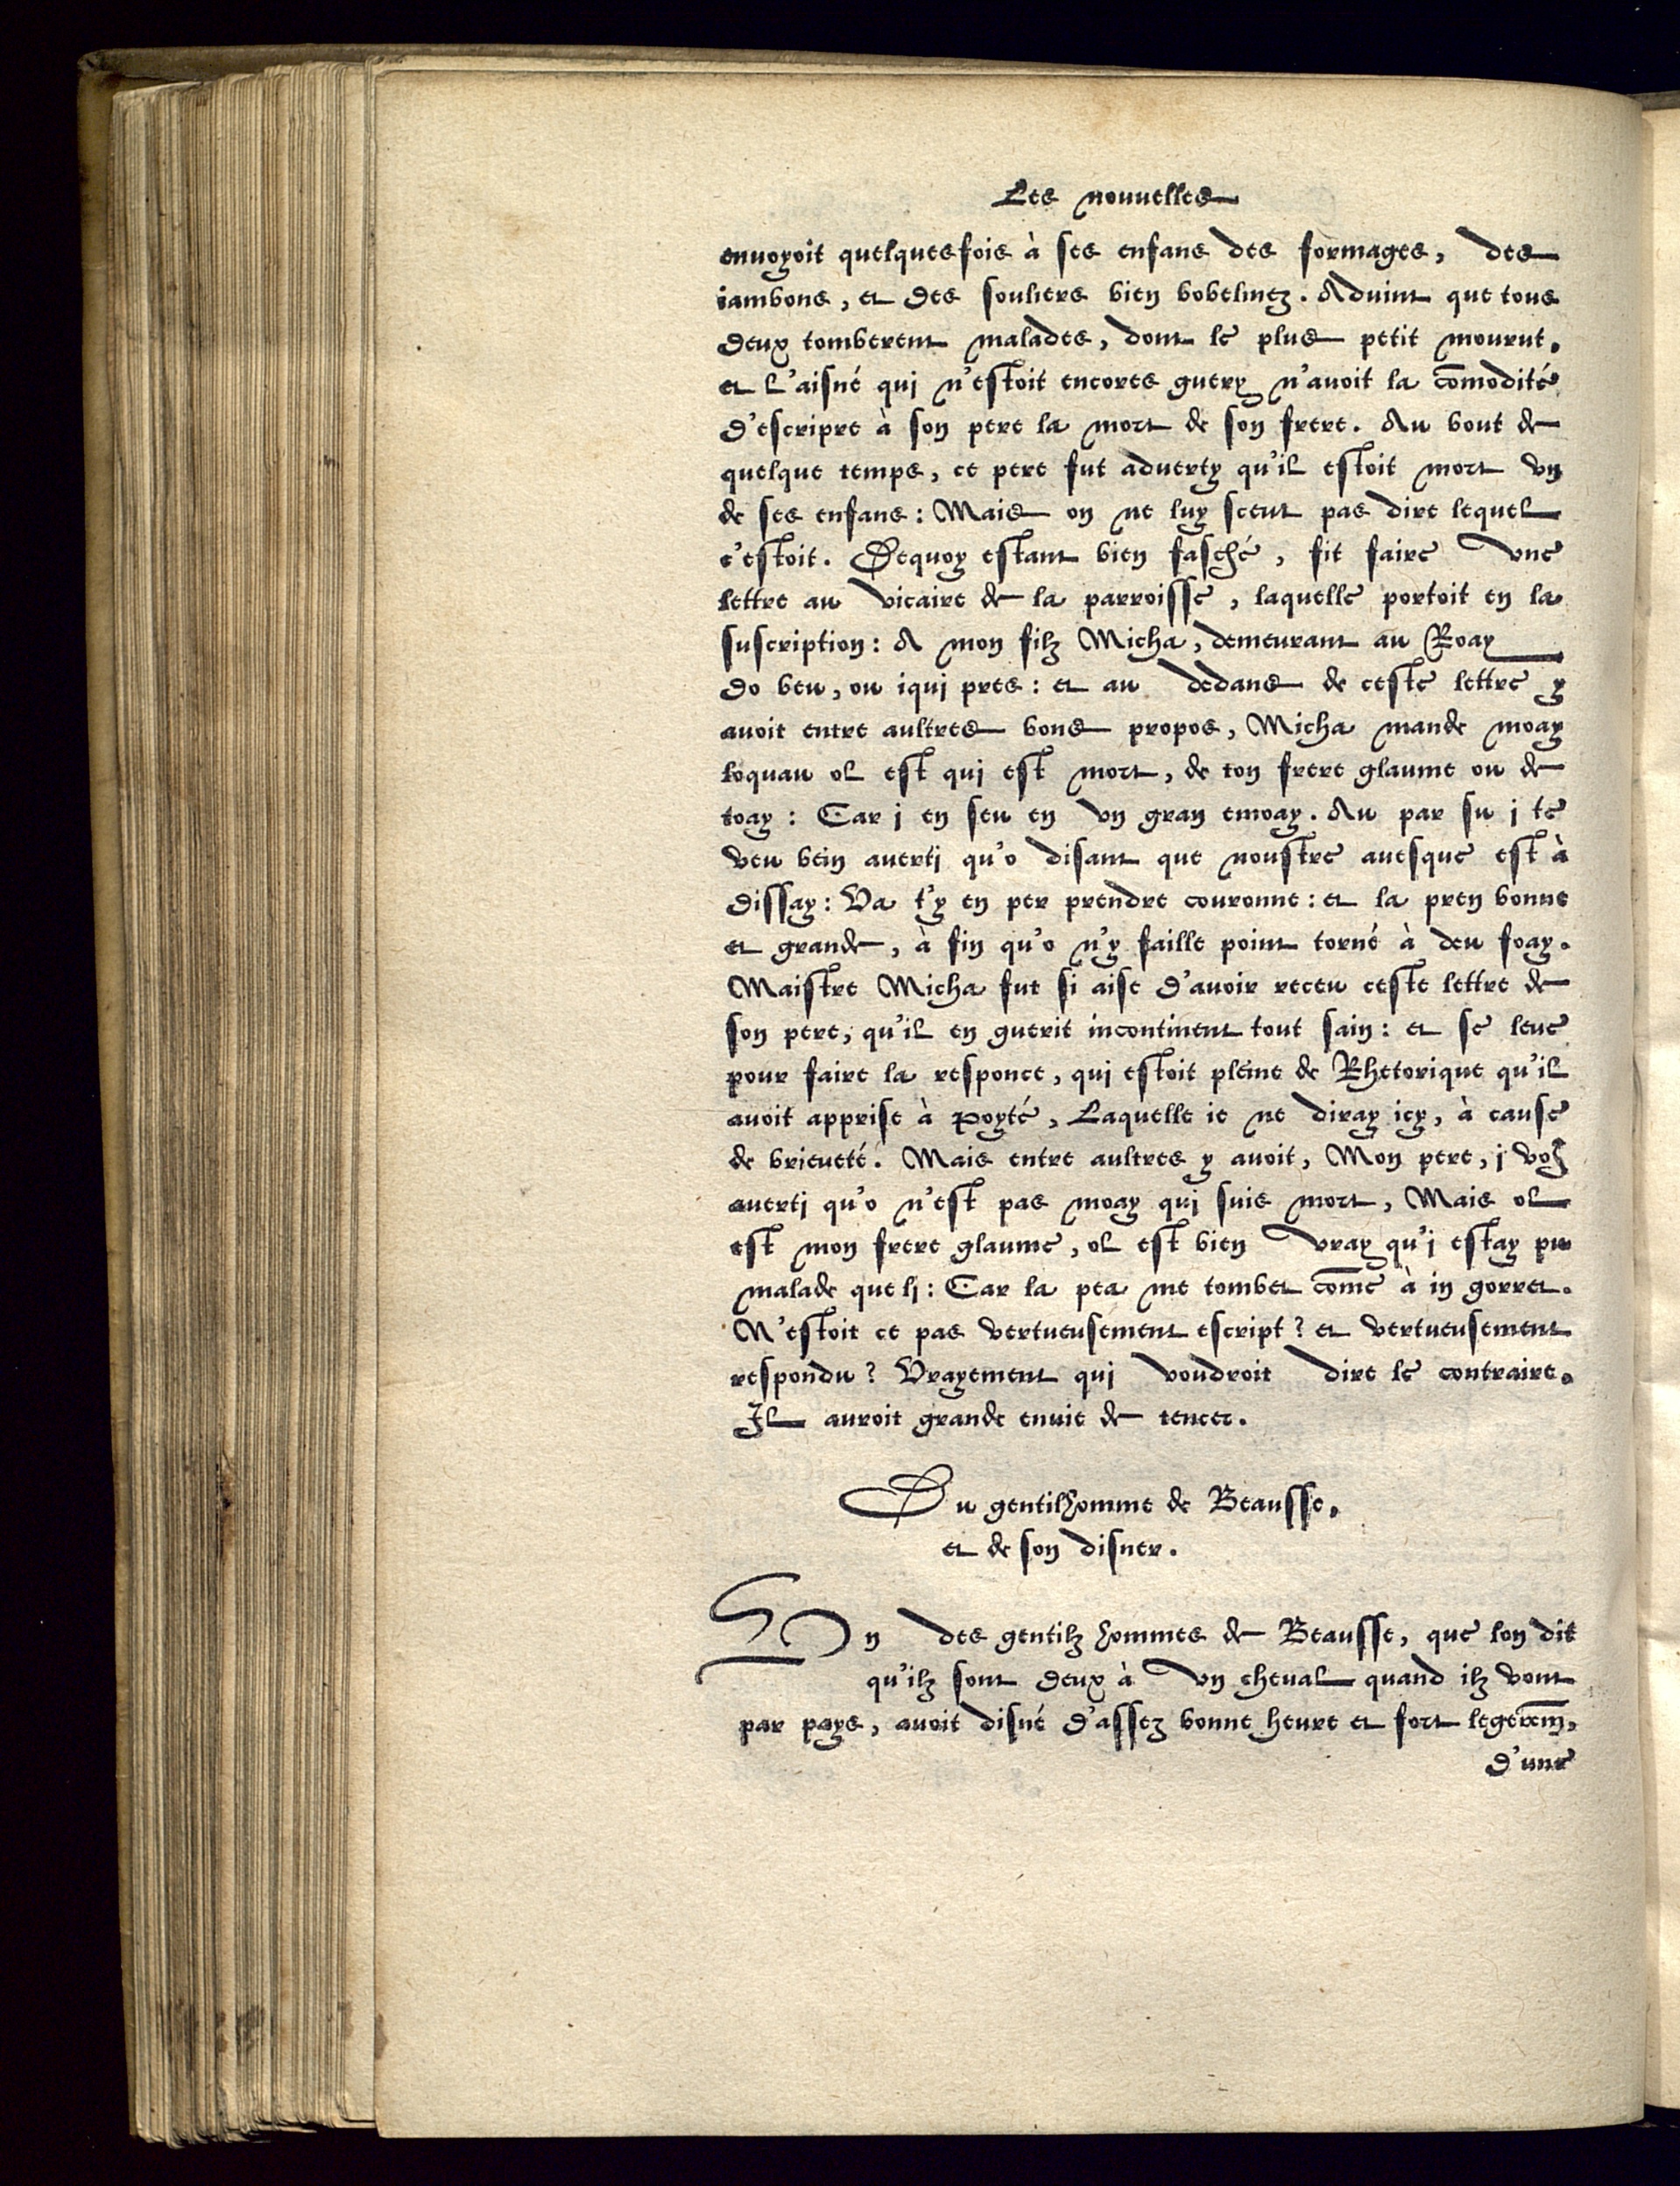 Les nouuelles
enuoyoit quelquesfois à ses enfans des formages, des
iambons, et des souliers bien bobelinez. Aduint que tous
deux tomberent malades, dont le plus petit mourut,
et l'aisné qui n'estoit encores guery n'auoit la cōmodité
d'escripre à son pere la mort de son frere. Au bout de
quelque temps, ce pere fut aduerty qu'il estoit mort vn
de ses enfans: Mais on ne luy sceut pas dire lequel
c'estoit. Dequoy estant bien fasché, fit faire vne
lettre au vicaire de la parroisse, laquelle portoit en la
suscription: A mon filz Micha, demeurant au Roay
do beu, ou iqui pres: et au dedans de ceste lettre y
auoit entre aultres bons propos, Micha mande moay
loquau ol est qui est mort, de ton frere glaume ou de
toay: Car j en seu en vn gran emoay. Au par su j te
veu bein auerti qu'o disant que noustre auesque est à
dissay: Va t'y en per prendre couronne: et la pren bonne
et grande, à fin qu'o n'y faille point torné à deu foay.
Maistre Micha fut si aise d'auoir receu ceste lettre de
son pere, qu'il en guerit incontinent tout sain: et se leue
pour faire la responce, qui estoit pleine de Rhetorique qu'il
auoit apprise à poyté, Laquelle ie ne diray icy, à cause
de brieueté. Mais entre aultres y auoit, Mon pere, j voꝰ
auerti qu'o n'est pas moay qui suis mort, Mais ol
est mon frere glaume, ol est bien vray qu'j estay pu
malade que li: Car la pea me tombet cōme à in gorret.
N'estoit ce pas vertueusement escript? et vertueusement
respondu? Vrayement qui voudroit dire le contraire,
Il auroit grande enuie de tencer.
Du gentilhomme de Beausse,
et de son disner.
Vn des gentilz hommes de Beausse, que lon dit
qu'ilz sont deux à vn cheual quand ilz vont
par pays, auoit disné d'assez bonne heure et fort legerem̄,
d'une